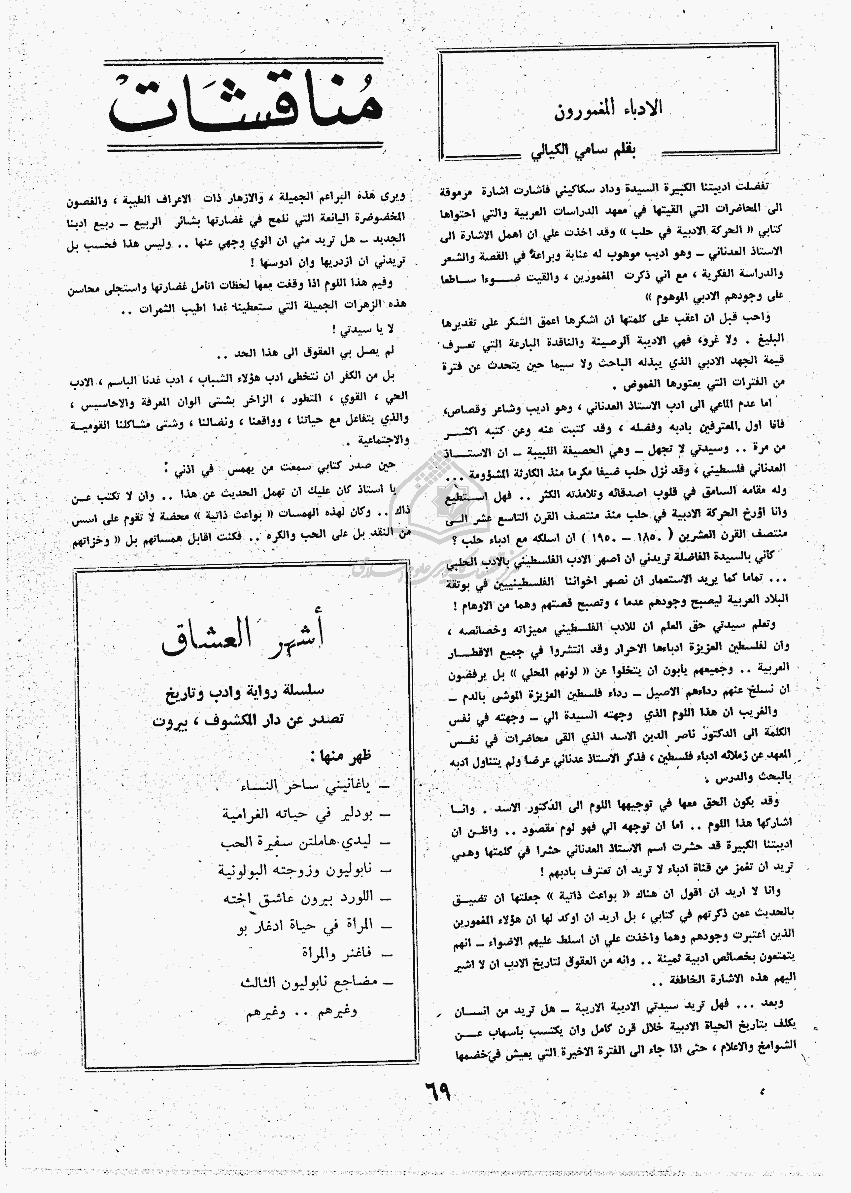 مُناقشَات
الادباء المغمورون
بقلم سامي الكيالي
تفضلت اديبتنا الكبيرة السيدة وداد سكاكيني فاشارت اشارة مرموقة
الى المحاضرات التي القيتها في معهد الدراسات العربية والتي احتواها
كتابي « الحركة الادبية في حلب » وقد اخذت علي ان اهمل الاشارة الى
الاستاذ العدناني ــ وهو اديب موهوب له عناية وبراعة في القصة والشعر
والدراسة الفكرية ، مع اني ذكرت المغمورين ، والقيت ضـوءا ساطعا
على وجودهم الادبي الموهوم »
واحب قبل ان اعقب على كلمتها ان اشكرها اعمق الشكر على تقديرها
البليغ . ولا غرو، فهي الاديبة الرصينة والناقدة البارعة التي تعـرف
قيمة الجهد الادبي الذي يبذله الباحث ولا سيما حين يتحدث عن فترة
من الفترات التي يعتورها الغموض .
اما عدم الماعي الى ادب الاستاذ العدناني ، وهو اديب وشاعر وقصاص،
فانا اول المعترفين بادبه وفضله ، وقد كتبت عنه وعن كتبه اكثــر
من مرة .. وسيدتي لا تجهل ــ وهي الحصيفة اللبيبة ــ ان الاستــاذ
العدناني فلسطيني ، وقد نزل حلب ضيفا مكرما منذ الكارثة المشؤومة ...
وله مقامه السامق في قلوب اصدقائه وتلامذته الكثر .. فهل استطيع
وانا اؤرخ الحركة الادبية في حلب منذ منتصف القرن التاسع عشر الـى
منتصف القرن العشرين ( ١٨٥٠ ــ ١٩٥٠ ) ان اسلكه مع ادباء حلب ؟
كاني بالسيدة الفاضلة تريدني ان اصهر الادب الفلسطيني بالادب الحلبي
... تماما كما يريد الاستعمار ان نصهر اخواننا الفلسطينيين في بوتقة
البلاد العربية ليصبح وجودهم عدما ، وتصبح قصتهم وهما من الاوهام !
وتعلم سيدتي حق العلم ان للادب الفلسطيني مميزاته وخصائصه ،
وان لفلسطين العزيزة ادباءها الاحرار وقد انتشروا في جميع الاقطـار
العربية .. وجميعهم يابون ان يتخلوا عن « لونهم المحلي » بل يرفضون
ان نسلخ عنهم رداءهم الاصيل ــ رداء فلسطين العزيزة الموشى بالدم ــ
والغريب ان هذا اللوم الذي وجهته السيدة الي ــ وجهته في نفس
الكلمة الى الدكتور ناصر الدين الاسد الذي القى محاضرات في نفـس
المعهد عن زملائه ادباء فلسطين ، فذكر الاستاذ عدناني عرضا ولم يتناول ادبه
بالبحث والدرس .
وقد يكون الحق معها في توجيهها اللوم الى الدكتور الاسد . وانـا
اشاركها هذا اللوم .. اما ان توجهه الي فهو لوم مقصود .. واظـن ان
اديبتنا الكبيرة قد حشرت اسم الاستاذ العدناني حشرا في كلمتها وهـي
تريد ان تغمز من قناة ادباء لا تريد ان تعترف بادبهم !
وانا لا اريد ان اقول ان هناك « بواعث ذاتية » جعلتها ان تضيـق
بالحديث عمن ذكرتهم في كتابي ، بل اريد ان اوكد لها ان هؤلاء المغمورين
الذين اعتبرت وجودهم وهما واخذت علي ان اسلط عليهم الاضواء ــ انهم
يتمتعون بخصائص ادبية ثمينة .. وانه من العقوق لتاريخ الادب ان لا اشير
اليهم هذه الاشارة الخاطفة ..
وبعد ... فهل تريد سيدتي الاديبة الاريبة ــ هل تريد من انسـان
يكلف بتاريخ الحياة الادبية خلال قرن كامل وان يكتب بأسهاب عــن
الشوامخ والاعلام ، حتى اذا جاء الى الفترة الاخيرة التي يعيش في خضمها
ويرى هذه البراعم الجميلة ، والازهار ذات الاعراف الطيبة ، والغصون
المخضوضرة اليانعة التي نلمح في غضارتها بشائر الربيع ــ ربيع ادبنا
الجديد ــ هل تريد مني ان الوي وجهي عنها .. وليس هذا فحسب بل
تريدني ان ازدريها وان ادوسها !
وفيم هذا اللوم اذا وقفت معها لحظات اتامل غضارتها واستجلى محاسن
هذه الزهرات الجميلة التي ستعطينا غدا اطيب الثمرات ..
لا يا سيدتي !
لم يصل بي العقوق الى هذا الحد ..
بل من الكفر ان نتخطى ادب هؤلاء الشباب ، ادب غدنا الباسم ، الادب
الحي ، القوي ، المتطور ، الزاخر بشتى الوان المعرفة والاحاسيس ،
والذي يتفاعل مع حياتنا ، وواقعنا ، ونضالنا ، وشتى مشاكلنا القوميـة
والاجتماعية .
حين صدر كتابي سمعت من يهمس في اذني :
يا استاذ كان عليك ان تهمل الحديث عن هذا .. وان لا تكتب عـن
ذاك .. وكان لهذه الهمسات « بواعث ذاتية » محضة لا تقوم على اسس
من النقد بل على الحب والكره .. فكنت اقابل همساتهم بل « وخزاتهم
أشهر العشاق
سلسلة رواية وادب وتاريخ
تصدر عن دار المكشوف ، بيروت
ظهر منها :
ــ باغانيني ساحر النساء
ــ بودلير في حياته الغرامية
ــ ليدي هاملتن سفيرة الحب
ــ نابوليون وزوجته البولونية
ــ اللورد بيرون عاشق اخته
ــ المرأة في حياة ادغار بو
ــ فاغنر والمرأة
ــ مضاجع نابوليون الثالث
وغيرهم .. وغيرهم
٦٩